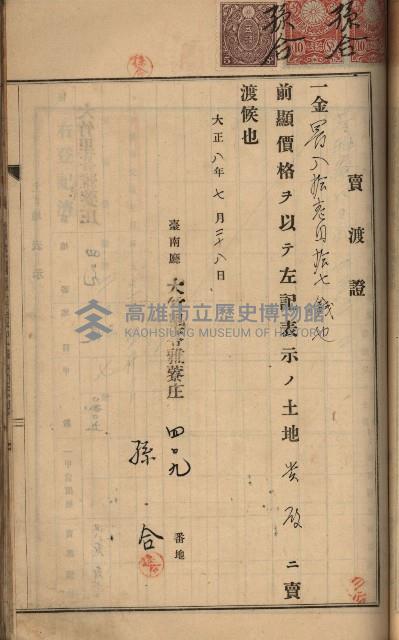 孫合
孫合
賣渡證
一金 八拾 円拾七錢也
前顯價格ヲ以テ左記表示ノ土地 貴殿 ニ賣
渡候也
大正八年七月二十八日
臺南廳
大竹里苓雅寮庄
四〇九
番地
孫合
高雄市立歷史博物館
KAOHSIUNG MUSEUM OF HISTORY